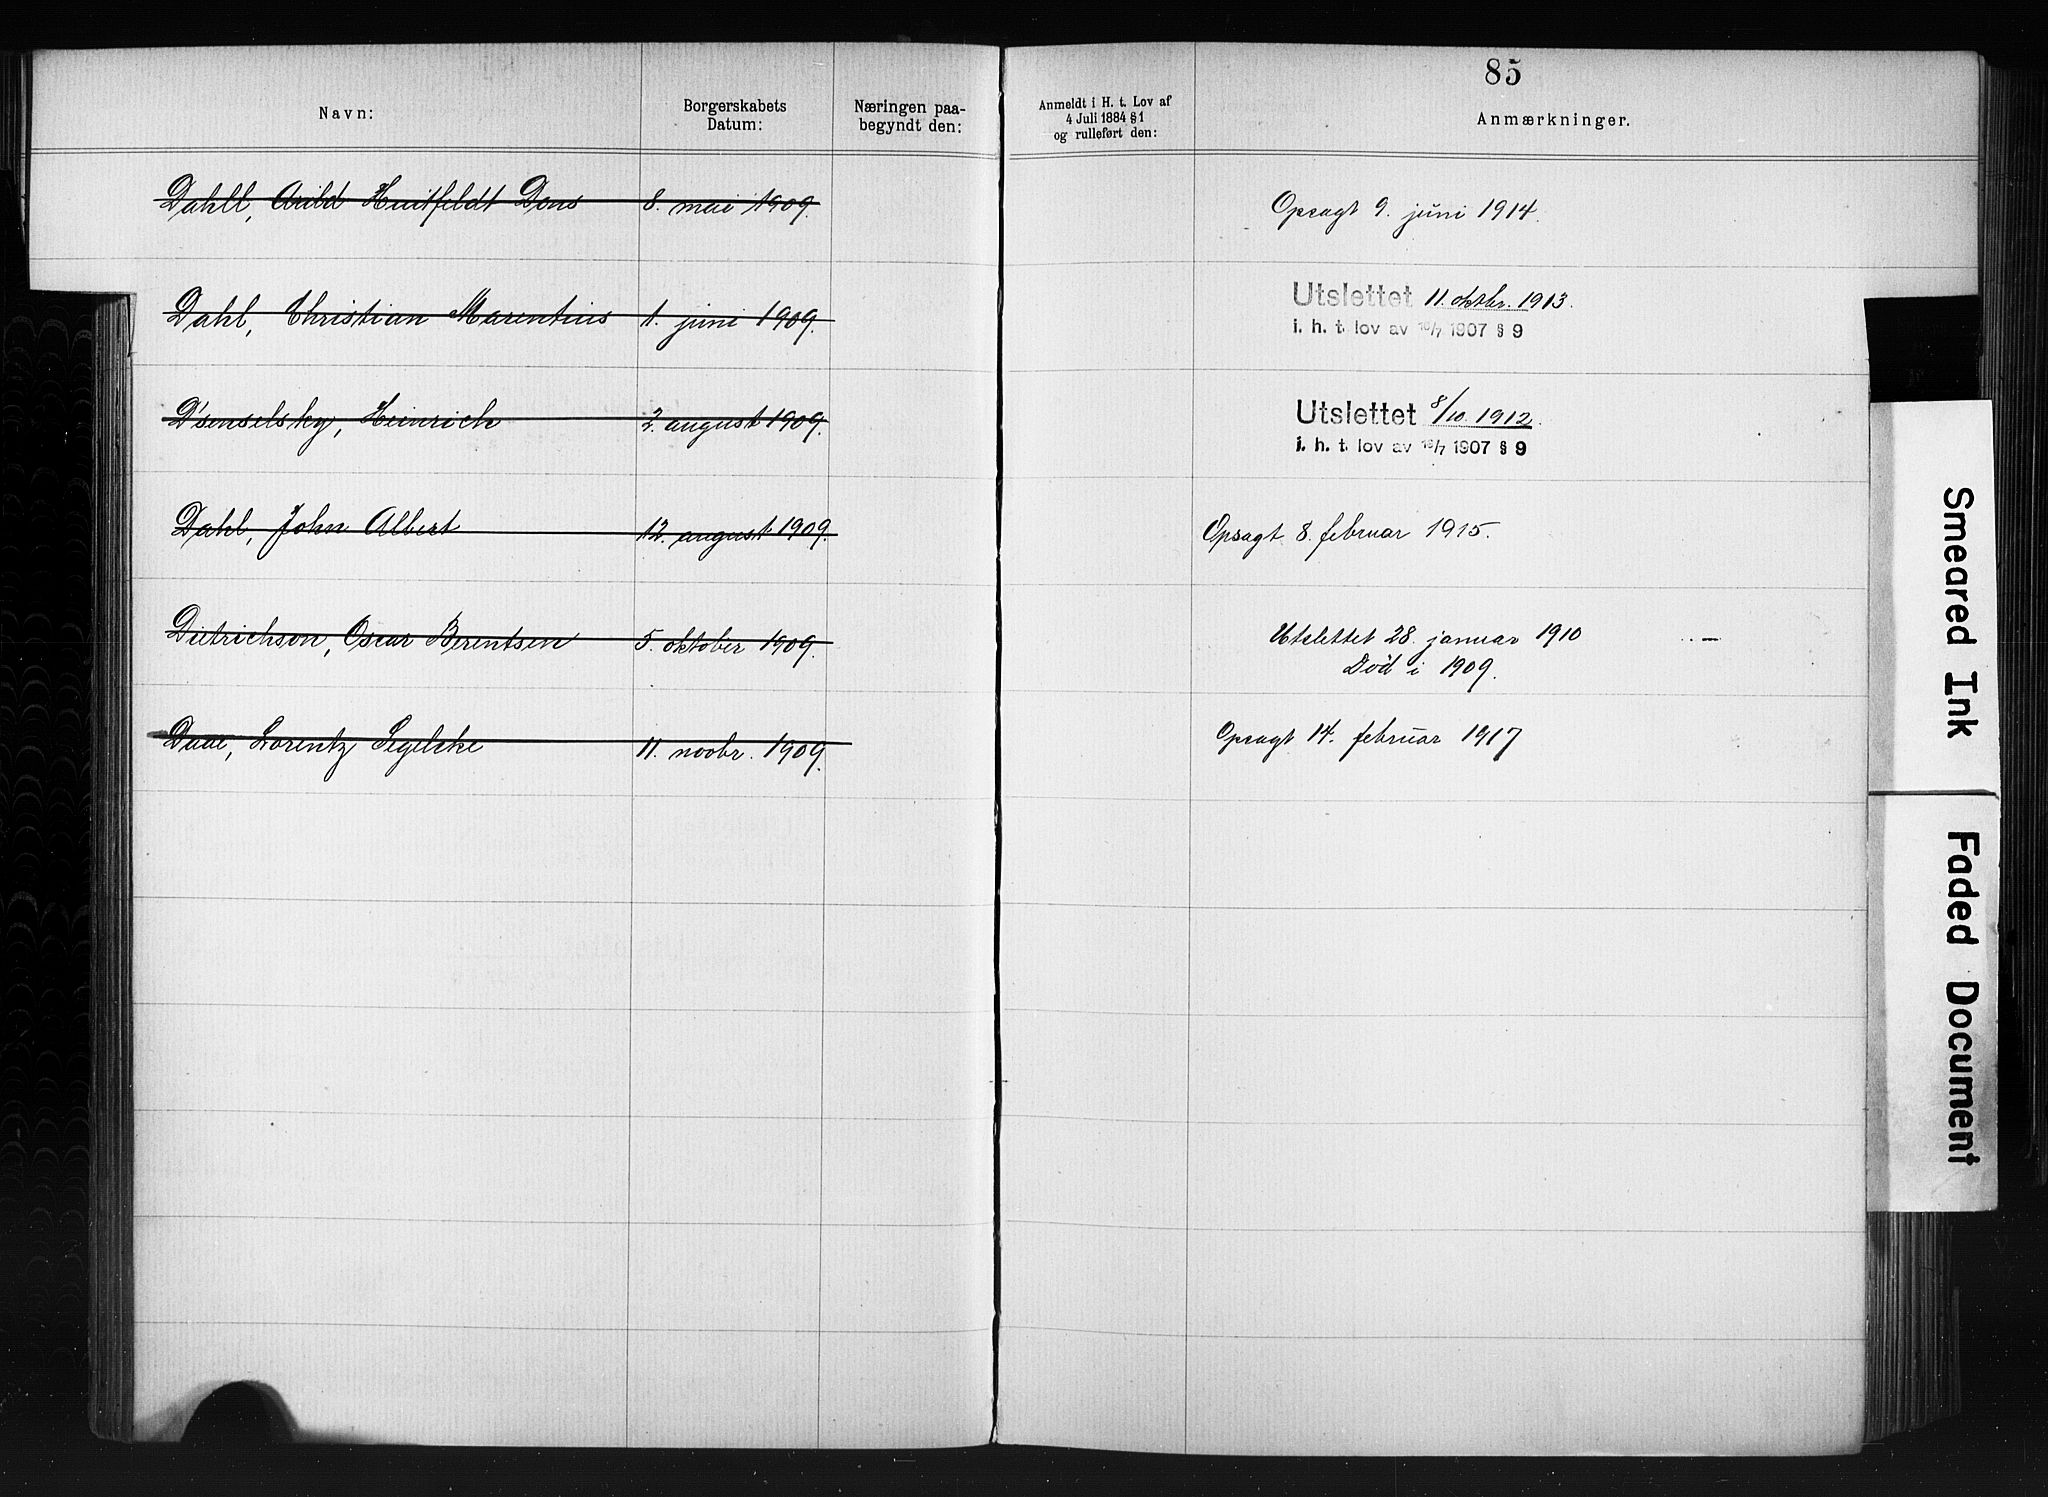 85
Navn:
Borgerskabets Datum:
Næringen paa-
begyndt den:
Anmeldt i H. t. Lov af
4 Juli 1884 § 1
og rulleført den:
Anmærkninger.
Dahll, Arild Huitfeldt Dons 8. mai 1909. Opsagt 9. juni 1914.
Dahl, Christian Marentius 1. juni 1909. Utslettet 11. oktbr. 1913.
i. h. t. lov av 10/7 1907 § 9
D'senselsky, Heinrich 2. august 1909. Utslettet 8/10. 1912.
i. h. t. lov av 10/7 1907 § 9
Dahl, John Albert 12. august 1909. Opsagt 8. februar 1915.
Dietrichson, Oscar Berentsen 5. oktober 1909. Utslettet 28. januar 1910
Död i 1909.
Daae, Lorentz Segelcke 11. novbr. 1909. Opsagt 14. februar 1917
Smeared Ink
Faded Document